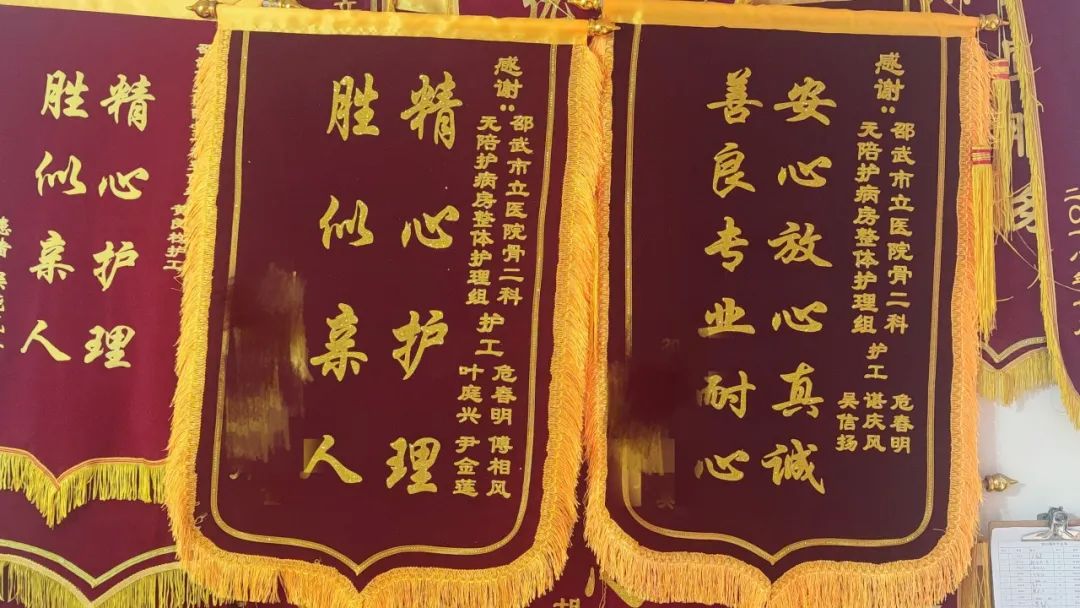 感谢：
邵武市立医院骨二科
无陪护病房整体护理组 护工
危春明 傅相风
叶庭兴 尹金莲
精心护理
胜似亲人
感谢：
邵武市立医院骨二科
无陪护病房整体护理组 护工
危春明
谌庆风
吴信扬
安心放心真诚
善良专业耐心
精心护理
胜似亲人